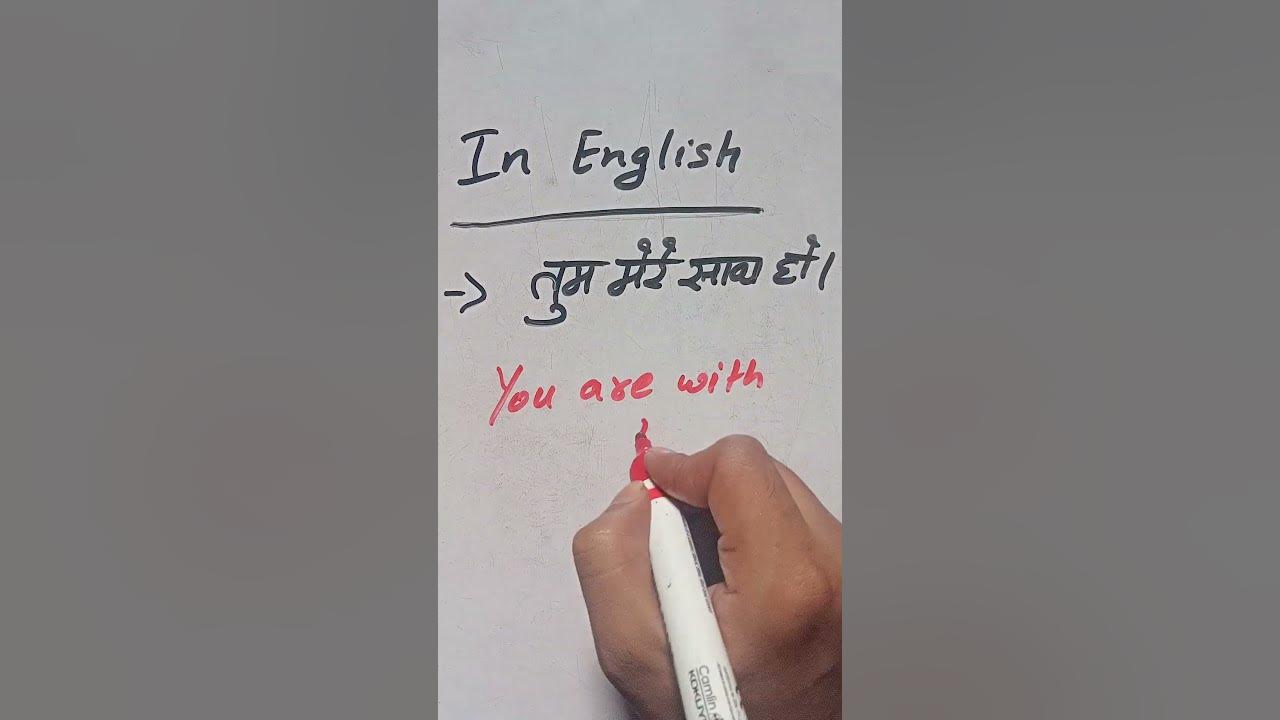 In English
-> तुम मेरे साथ हो।
You are with
Camlin
KOKUYO